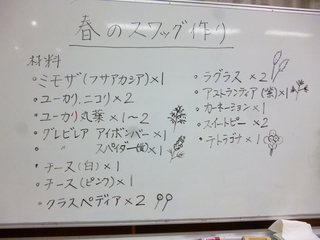 春のスワッグ作り
材料
・ミモザ(フサアカシア)×1
・ユーカリ、ニコリ×2
・ユーカリ丸葉×1〜2
・グレビレア アイボンバー×1
・〃 スパイダー(黄)×1
・チース(白)×1
・チース(ピンク)×1
・クラスペディア×2
・ラグラス×2
・アストランティア(紫)×1
・カーネーション×1
・スイートピー×2
・テトラゴナ×1